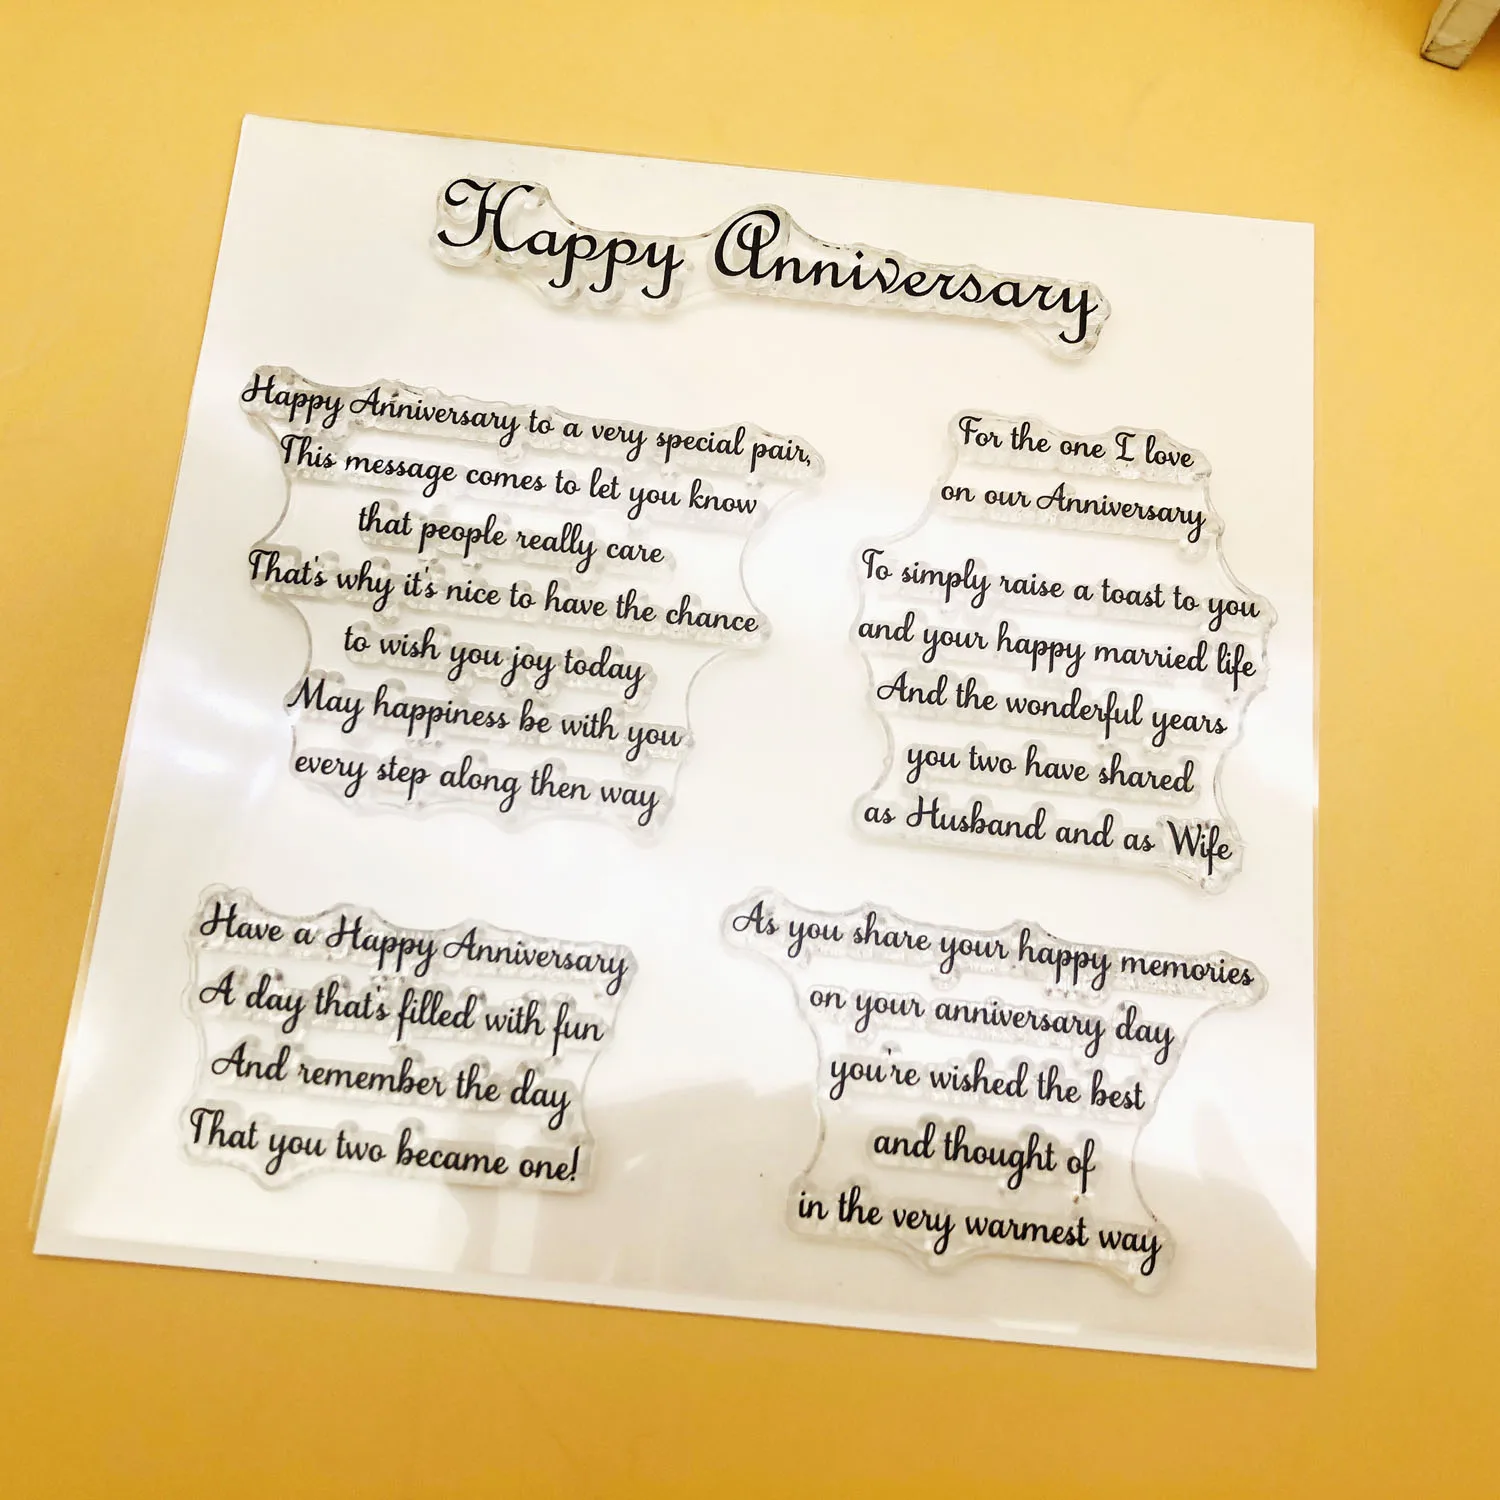 Happy Anniversary
Happy Anniversary to a very special pair,
This message comes to let you know
that people really care
That's why it's nice to have the chance
to wish you joy today
May happiness be with you
every step along then way
For the one I love
on our Anniversary
To simply raise a toast to you
and your happy married life
And the wonderful years
you two have shared
as Husband and as Wife
Have a Happy Anniversary
A day that's filled with fun
And remember the day
That you two became one!
As you share your happy memories
on your anniversary day
you're wished the best
and thought of
in the very warmest way